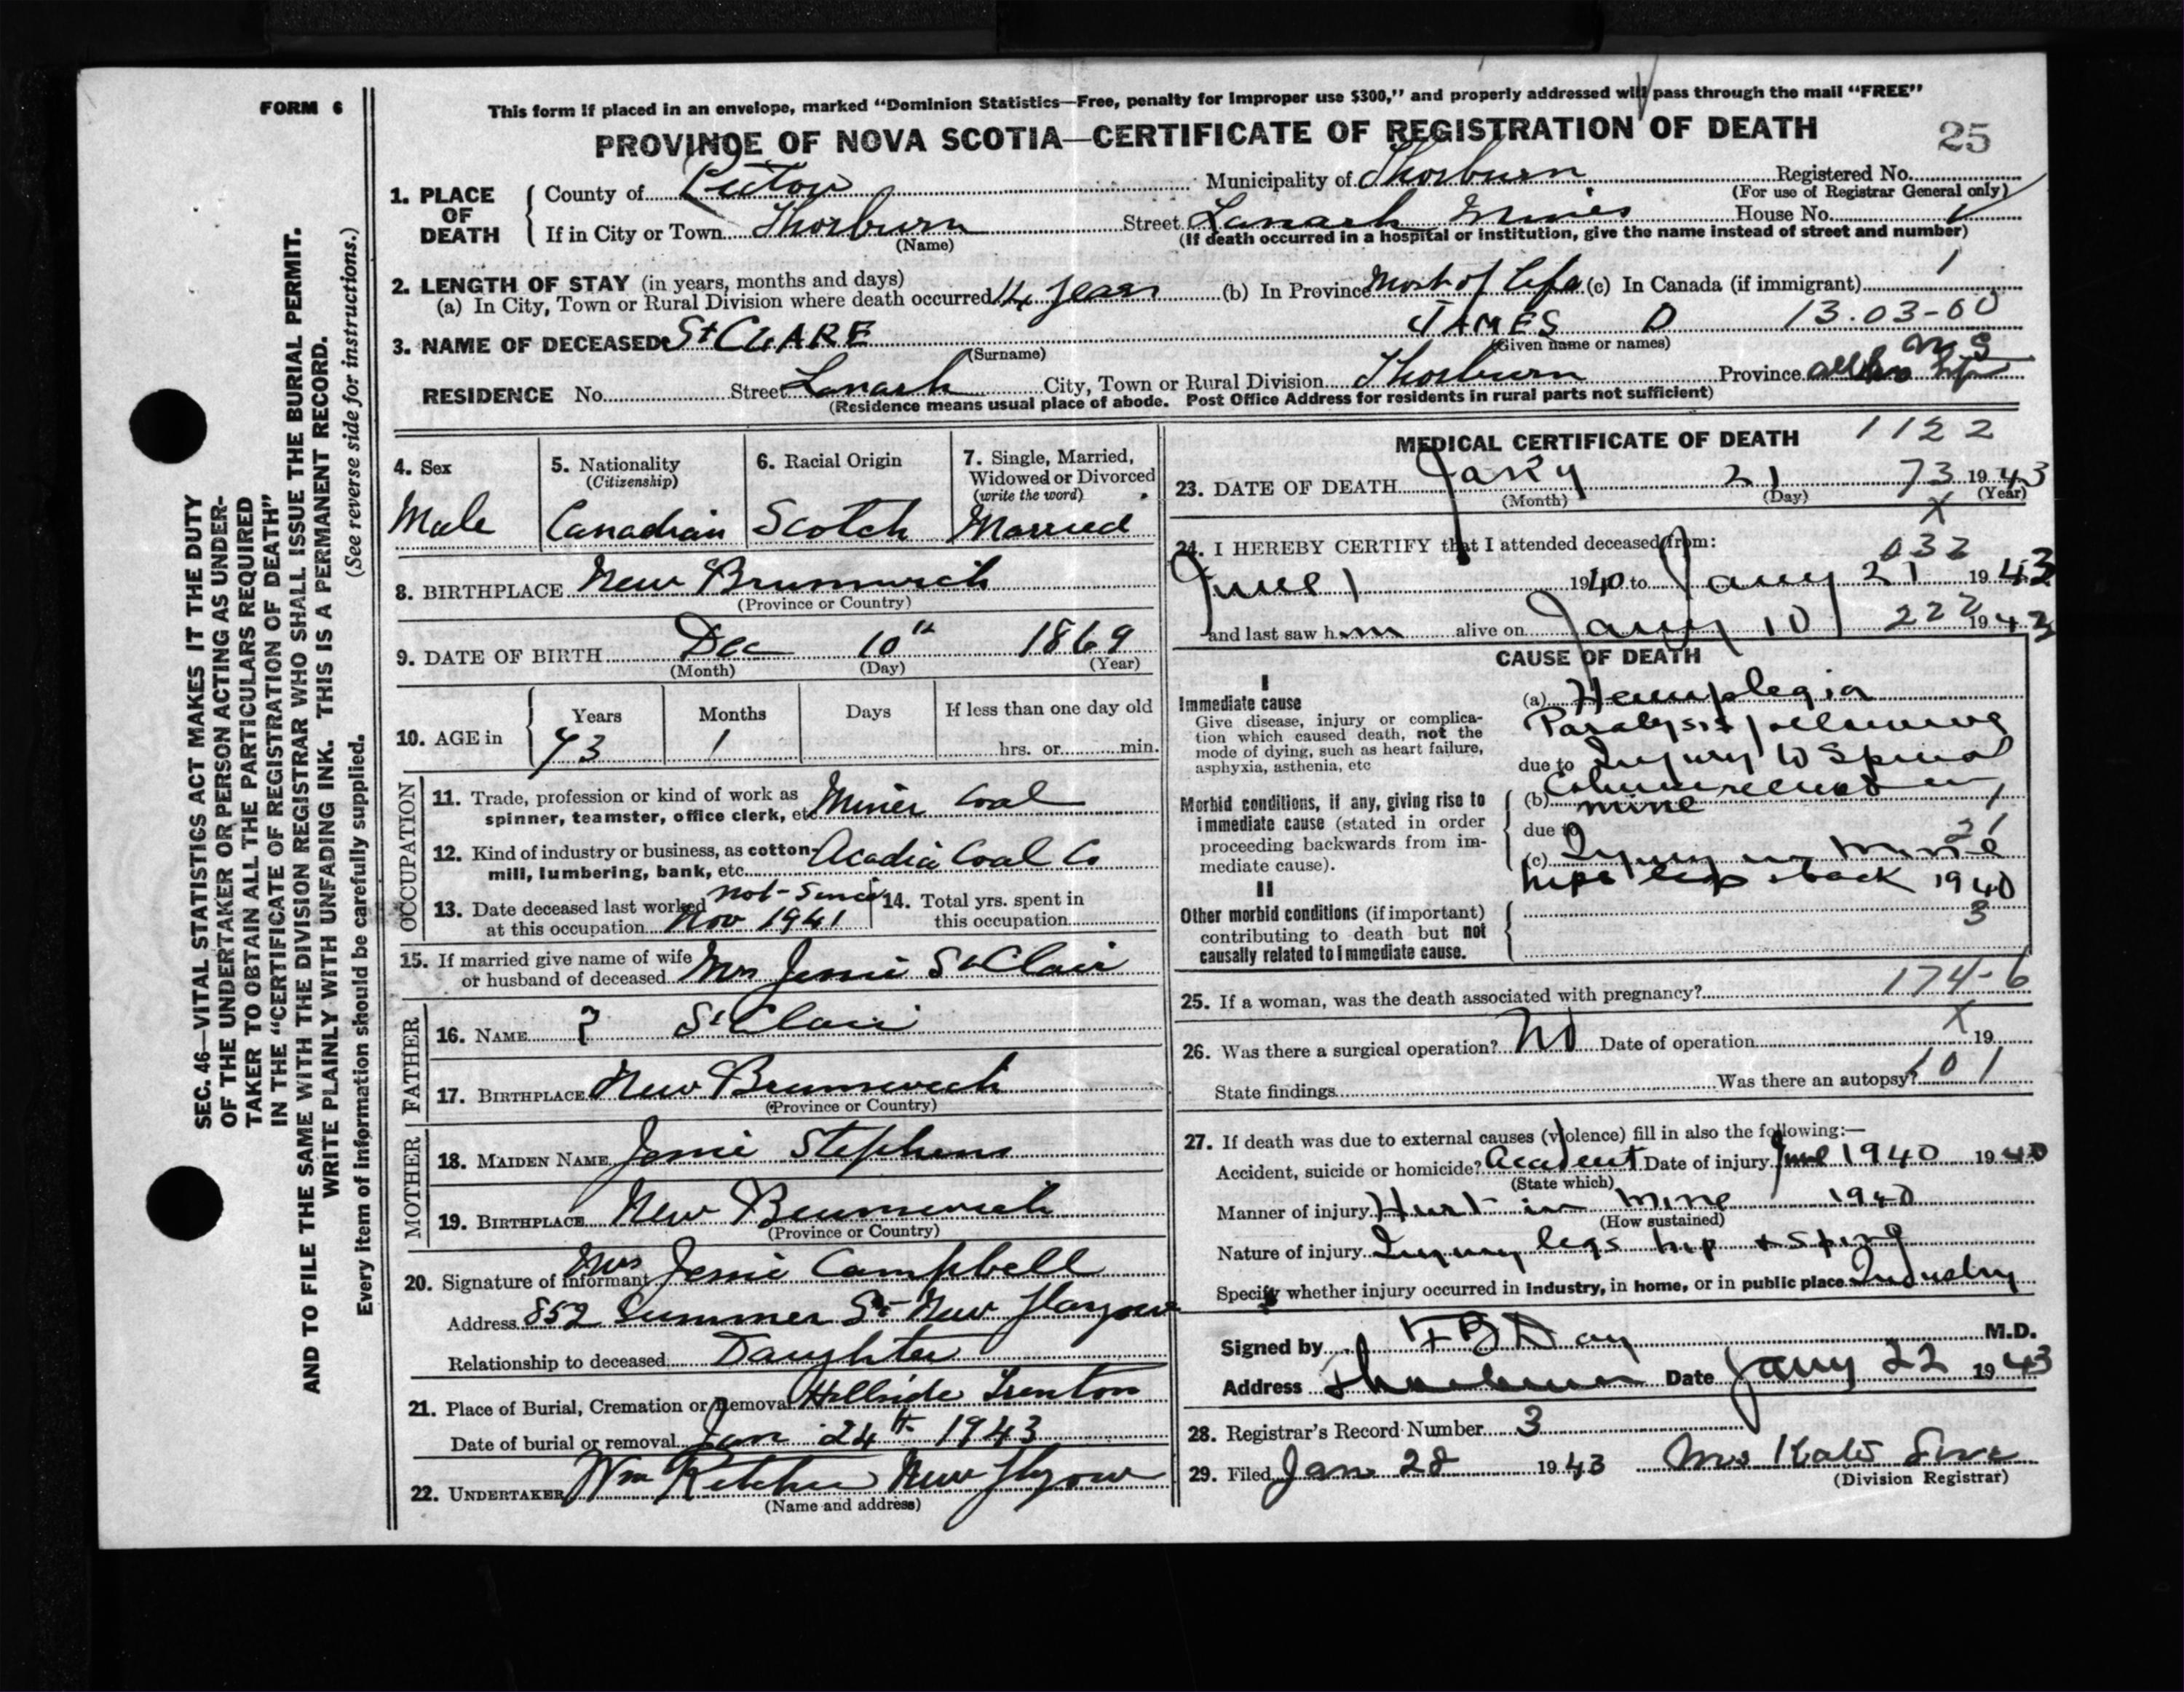 FORM 6
This form if placed in an envelope, marked "Dominion Statistics—Free, penalty for improper use $300," and properly addressed will pass through the mail "FREE"
PROVINCE OF NOVA SCOTIA—CERTIFICATE OF REGISTRATION OF DEATH
25
1. PLACE OF DEATH
County of Pictou Municipality of Thorburn Registered No.
(For use of Registrar General only)
If in City or Town Thorburn Street Mines House No.
(Name) (If death occurred in a hospital or institution, give the name instead of street and number)
2. LENGTH OF STAY (in years, months and days)
(a) In City, Town or Rural Division where death occurred 14 years (b) In Province Most of life (c) In Canada (if immigrant) 1
3. NAME OF DECEASED St CLARE JAMES D 13.03-60
(Surname) (Given name or names)
N S
RESIDENCE No. Street City, Town or Rural Division Thorburn Province
(Residence means usual place of abode. Post Office Address for residents in rural parts not sufficient)
4. Sex
Male
5. Nationality
(Citizenship)
Canadian
6. Racial Origin
Scotch
7. Single, Married, Widowed or Divorced
(write the word)
Married
8. BIRTHPLACE New Brunswick
(Province or Country)
9. DATE OF BIRTH Dec 10th 1869
(Month) (Day) (Year)
10. AGE in
Years Months Days If less than one day old
73 1 hrs. or min.
OCCUPATION
11. Trade, profession or kind of work as spinner, teamster, office clerk, etc. Miner Coal
12. Kind of industry or business, as cotton-mill, lumbering, bank, etc. Acadia Coal Co
13. Date deceased last worked at this occupation not since Nov 1941
14. Total yrs. spent in this occupation
15. If married give name of wife or husband of deceased Mrs Jessie St Clair
FATHER
16. NAME ? St Clair
17. BIRTHPLACE New Brunswick
(Province or Country)
MOTHER
18. MAIDEN NAME Stephens
19. BIRTHPLACE New Brunswick
(Province or Country)
20. Signature of informant Mrs Jessie Campbell
Address 852 Summer St New Glasgow
Relationship to deceased Daughter
21. Place of Burial, Cremation or Removal Hillside Trenton
Date of burial or removal Jan 24th 1943
22. UNDERTAKER Wm Ritchie New Glasgow
(Name and address)
MEDICAL CERTIFICATE OF DEATH 1122
23. DATE OF DEATH Jany 21 73 1943
(Month) (Day) (Year)
X
24. I HEREBY CERTIFY that I attended deceased from:
032
June 1 1940 to Jany 21 1943
and last saw him alive on Jany 10 222 1943
CAUSE OF DEATH
I
Immediate cause
Give disease, injury or complication which caused death, not the mode of dying, such as heart failure, asphyxia, asthenia, etc
(a) Hemiplegia
Paralysis following
due to Injury to Spinal
Morbid conditions, if any, giving rise to immediate cause (stated in order proceeding backwards from immediate cause).
(b) Column received in
mine 1
due to 21
(c) Injury in mine
hips legs & back 1940
II
Other morbid conditions (if important) contributing to death but not causally related to immediate cause.
3
25. If a woman, was the death associated with pregnancy? 174-6
X
26. Was there a surgical operation? No Date of operation 19
State findings Was there an autopsy? 101
27. If death was due to external causes (violence) fill in also the following:—
Accident, suicide or homicide? Accident Date of injury June 1940 1940
(State which)
Manner of injury Hurt in mine 1940
(How sustained)
Nature of injury Injury legs hip & spine
Specify whether injury occurred in industry, in home, or in public place Industry
Signed by F B Day M.D.
Address Thorburn Date Jany 22 1943
28. Registrar's Record Number 3
29. Filed Jan 28 1943 Mrs Kate
(Division Registrar)
SEC. 46—VITAL STATISTICS ACT MAKES IT THE DUTY
OF THE UNDERTAKER OR PERSON ACTING AS UNDER-
TAKER TO OBTAIN ALL THE PARTICULARS REQUIRED
IN THE "CERTIFICATE OF REGISTRATION OF DEATH"
AND TO FILE THE SAME WITH THE DIVISION REGISTRAR WHO SHALL ISSUE THE BURIAL PERMIT.
WRITE PLAINLY WITH UNFADING INK. THIS IS A PERMANENT RECORD.
Every item of information should be carefully supplied. (See reverse side for instructions.)